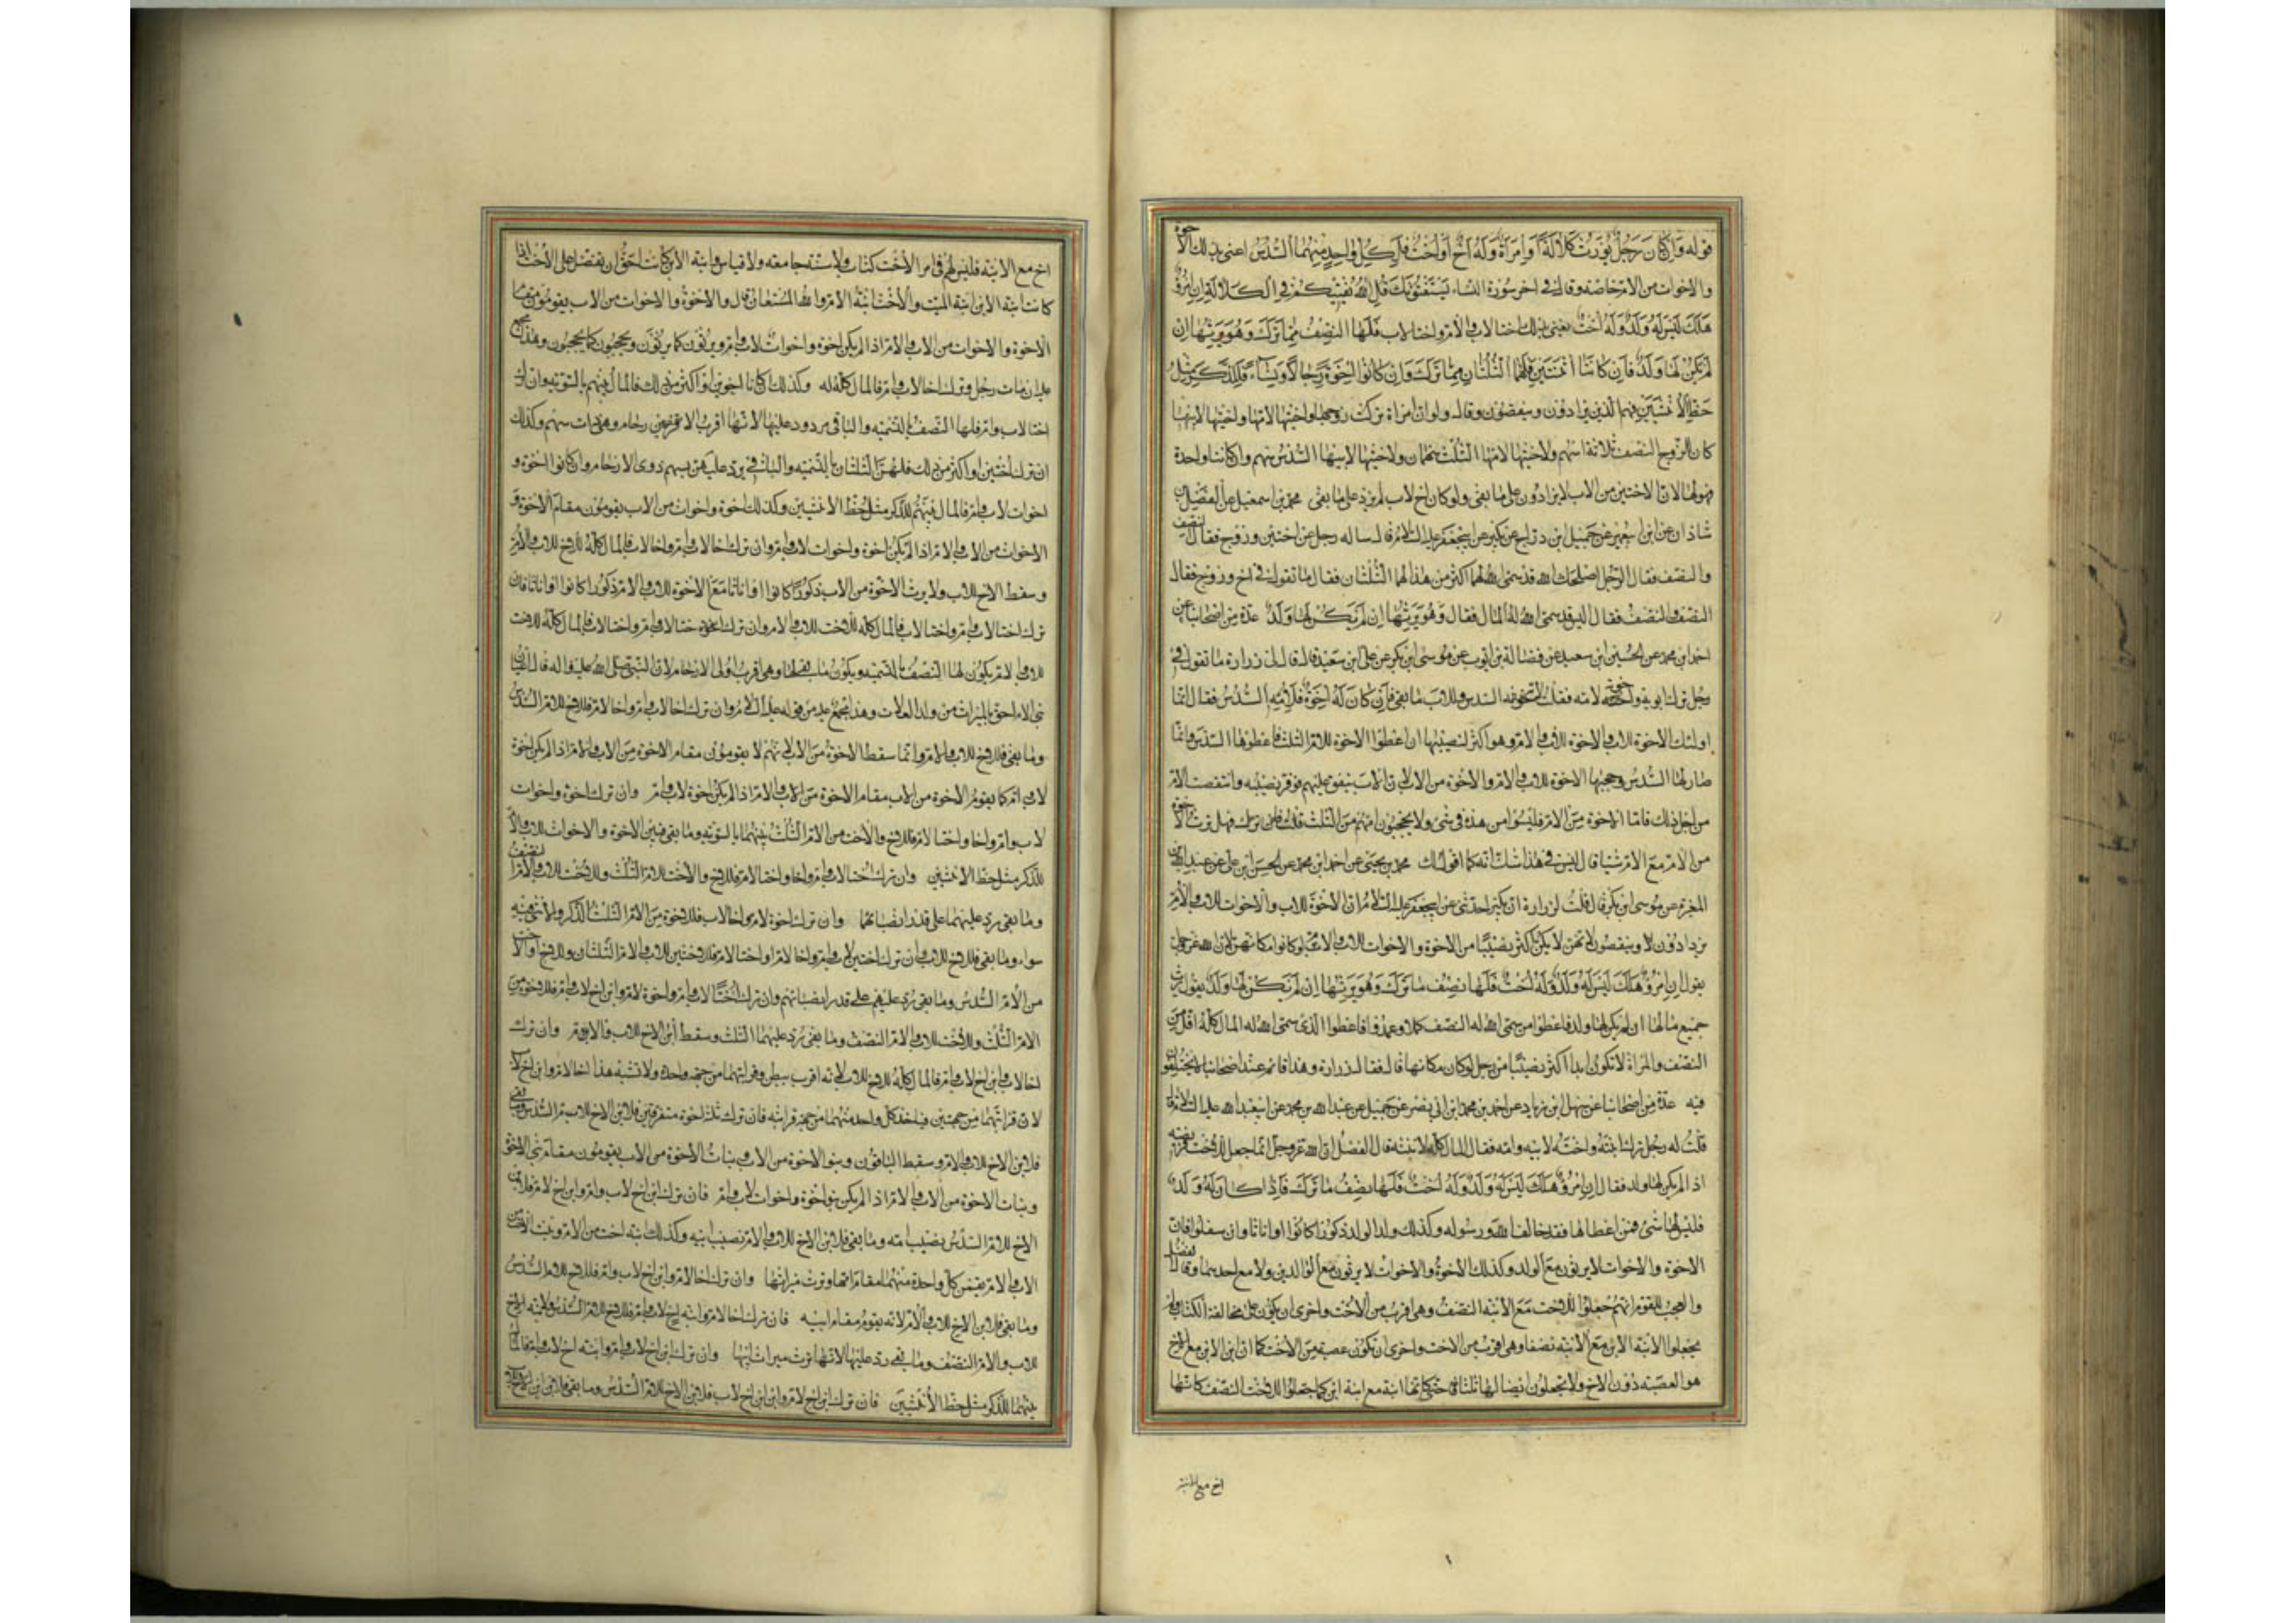 قوله وان كان رجل يورث كلالة او امراة وله اخ او اخت فلكل واحد منهما السدس اعنى بذلك الاخوة
والاخوات من الام خاصة وقال في اخر سورة النساء يستفتونك قل الله يفتيكم في الكلالة ان امرؤ
هلك ليس له ولد وله اخت يعنى بذلك اختا لاب وام او اختا لاب فلها النصف مما ترك وهو يرثها ان
لم يكن لها ولد فان كانتا اثنتين فلهما الثلثان مما ترك وان كانوا اخوة رجالا ونساء فللذكر مثل
حظ الانثيين فهم الذين يزادون وينقصون وقال ولو ان امراة تركت زوجها واختيها لامها واختيها لابيها
كان للزوج النصف ثلاثة اسهم ولاختيها لامها الثلث سهمان ولاختيها لابيها السدس سهم وان كانت واحدة
فهو لها لان الاختين من الاب لا يزادون على ما بقى ولو كان اخ لاب لم يزد على ما بقى محمد بن اسمعيل عن الفضل بن
شاذان عن ابن ابى عمير عن جميل ابن دراج عن بكير عن ابى جعفر عليه السلام قال ساله رجل عن اختين وزوج فقال النصف
والنصف فقال الرجل اصلحك الله قد سمى الله لهما اكثر من هذا لهما الثلثان فقال ما تقول في اخ وزوج فقال
النصف والنصف فقال اليس قد سمى الله له المال فقال وهو يرثها ان لم يكن لها ولد عدة من اصحابنا عن
احمد ابن محمد عن الحسين ابن سعيد عن فضالة بن ايوب عن موسى ابن بكر عن على ابن سعيد قال قال لى زرارة ما تقول في
رجل ترك ابويه واخوته لامه فقلت لاخوته السدس وللاب ما بقى فان كان له اخوة فلامه السدس فقال انما
اولئك الاخوة للاب والاخوة للاب والام وهو اكثر لنصيبها ان اعطوا الاخوة للام الثلث واعطوها السدس وانما
صار لها السدس وحجبها الاخوة للاب والام والاخوة من الاب لان الاب ينفق عليهم فوفر نصيبه وانتقصت الام
من اجل ذلك فاما الاخوة من الام فليسوا من هذه في شئ ولا يحجبون امهم من الثلث قلت فهل ترث الاخوة
من الام مع الام شيئا قال ليس في هذا شك انه كما اقول لك محمد بن يحيى عن احمد ابن محمد عن الحسن ابن على عن عبد الله ابن
المغيرة عن موسى ابن بكر قال قلت لزرارة ان بكيرا حدثنى عن ابى جعفر عليه السلام ان الاخوة للاب والاخوات للاب والام
يزدادون وينقصون لانهن لا يكن اكثر نصيبا من الاخوة والاخوات للاب والام لو كانوا مكانهن لان الله عز وجل
يقول ان امرؤ هلك ليس له ولد وله اخت فلها نصف ما ترك وهو يرثها ان لم يكن لها ولد يقول يرث
جميع مالها ان لم يكن لها ولد فاعطوا من سمى الله له النصف كملا وعمدوا فاعطوا الذى سمى الله له المال كله اقل من
النصف والمراة لا تكون ابدا اكثر نصيبا من رجل لو كان مكانها قال فقال زرارة وهذا قائم عند اصحابنا لا يختلفون
فيه عدة من اصحابنا عن سهل ابن زياد عن احمد بن محمد ابن ابى نصر عن جميل عن عبد الله بن محمد عن ابى عبد الله عليه السلام قال
قلت له رجل ترك ابنته واخته لابيه وامه فقال المال كله لابنته قال الفضل ان الله عز وجل انما جعل للاخت فريضة
اذا لم يكن لها ولد فقال ان امرؤ هلك ليس له ولد وله اخت فلها نصف ما ترك فاذا كان له ولد
فليس لها شئ فمن اعطاها فقد خالف الله ورسوله وكذلك ولد الولد ذكورا كانوا او اناثا وان سفلوا فان
الاخوة والاخوات لا يرثون مع الولد وكذلك الاخوة والاخوات لا يرثون مع الوالدين ولا مع احدهما وقال الفضل
والعجب للقوم انهم جعلوا للاخت مع الابنة النصف وهى اقرب من الاخت واحرى ان يكون على مخالفة الكتاب ولم
يجعلوا لابنة الابن مع الابنة نصفا وهى اقرب من الاخت واحرى ان تكون عصبة من الاخت كما ان ابن الابن مع الاخ
هو العصبة دون الاخ ولا يجعلون ايضا لها الثلث حتى كانها ابنة مع ابنة ابن كما جعلوا للاخت النصف كانها
اخ مع الابنة
اخ مع الابنة فليس لهم في امر الاخت كتاب ولا سنة جامعة ولا قياس وابنة الابن كانت احق ان تفضل على الاخت اذا
كانت ابنة الابن ابنة الميت والاخت ابنة الام والله المستعان قال والاخوة والاخوات من الاب يقومون مقام
الاخوة والاخوات من الاب والام اذا لم يكن اخوة واخوات لاب وام ويرثون كما يرثون ويحجبون كما يحجبون وهذا مجمع
عليه ان مات رجل وترك اخا لاب وام فالمال كله له وكذلك ان كانا اخوين او اكثر من ذلك فالمال بينهم بالسوية وان ترك
اختا لاب وام فلها النصف بالتسمية والباقى مردود عليها لانها اقرب الارحام وهى ذات سهم وكذلك
ان ترك اختين او اكثر من ذلك فلهن الثلثان بالتسمية والباقى يرد عليهن بسهم ذوى الارحام وان كانوا اخوة و
اخوات لاب وام فالمال بينهم للذكر مثل حظ الانثيين وكذلك اخوة واخوات من الاب يقومون مقام الاخوة و
الاخوات من الاب والام اذا لم يكن اخوة واخوات لاب وام وان ترك اخا لاب وام واخا لاب فالمال كله للاخ للاب والام
وسقط الاخ للاب ولا يرث الاخوة من الاب ذكورا كانوا او اناثا مع الاخوة للاب والام ذكورا كانوا او اناثا فان
ترك اختا لاب وام واختا لاب فالمال كله للاخت للاب والام
للاب والام يكون لها النصف بالتسمية ويكون ما بقى لها وهى اقرب اولى الارحام لان النبى صلى الله عليه واله قال اعيان
بنى الام احق بالميراث من ولد العلات وهذا مجمع عليه من قوله عليه السلام وان ترك اخا لاب وام واخا لام فللاخ للام السدس
وما بقى فللاخ للاب والام وانما سقط الاخوة من الاب لانهم لا يقومون مقام الاخوة من الاب والام اذا لم يكن اخوة
لاب وام كما يقوم الاخوة من الاب مقام الاخوة من الاب والام اذا لم يكن اخوة لاب وام وان ترك اخوة واخوات
لاب وام واخا واختا لام فللاخ والاخت من الام الثلث بينهما بالسوية وما بقى فبين الاخوة والاخوات للاب والام
للذكر مثل حظ الانثيين وان ترك اختا لاب وام واخا واختا لام فللاخ والاخت للام الثلث وللاخت للاب والام النصف
وما بقى يرد عليهما على قدر انصبائهما وان ترك اخوة لام واخا لاب فللاخوة من الام الثلث الذكر والانثى فيه
سواء وما بقى فللاخ للاب وان ترك اختين لاب وام واخا لام او اختا لام فللاختين للاب والام الثلثان وللاخ او الاخت
من الام السدس وما بقى رد عليهم على قدر انصبائهم وان ترك اختا لاب وام واخوة لام وابن اخ لاب وام فللاخوة من
الام الثلث وللاخت للاب والام النصف وما بقى رد عليهما الثلث وسقط ابن الاخ للاب والام وان ترك
اخا لاب وابن اخ لاب وام فالمال كله للاخ للاب لانه اقرب ببطن وقرابتهما من جهة واحدة ولا تشبه هذا اخا لام وابن اخ لاب
لان قرابتهما من جهتين فياخذ كل واحد منهما من جهة قرابته فان ترك ثلثة اخوة متفرقين فلابن الاخ للام السدس وما بقى
فلابن الاخ للاب والام وسقط الباقون وبنو الاخوة من الاب وبنات الاخوة من الاب يقومون مقام بنى الاخوة
وبنات الاخوة من الاب والام اذا لم يكن بنو اخوة واخوات لاب وام فان ترك ابن اخ لاب وام وابن اخ لام فلابن
الاخ للام السدس نصيب امه وما بقى فلابن الاخ للاب والام نصيب ابيه وكذلك ابنة اخت من الام وبنت الاخت من
الاب والام يقمن كل واحدة منهما مقام امها وترث ميراثها وان ترك اخا لام وابن اخ لاب وام فللاخ للام السدس
وما بقى فلابن الاخ للاب والام لانه يقوم مقام ابيه فان ترك اخا لام وابنة اخ لاب وام فللاخ للام السدس ولابنة الاخ
للاب والام النصف وما بقى رد عليها لانها ترث ميراث ابيها وان ترك ابن اخ لاب وام وابنة اخ لاب وام فالمال
بينهما للذكر مثل حظ الانثيين فان ترك ابن اخ لام وابن ابن اخ لاب فلابن الاخ للام السدس وما بقى فلابن ابن الاخ للاب